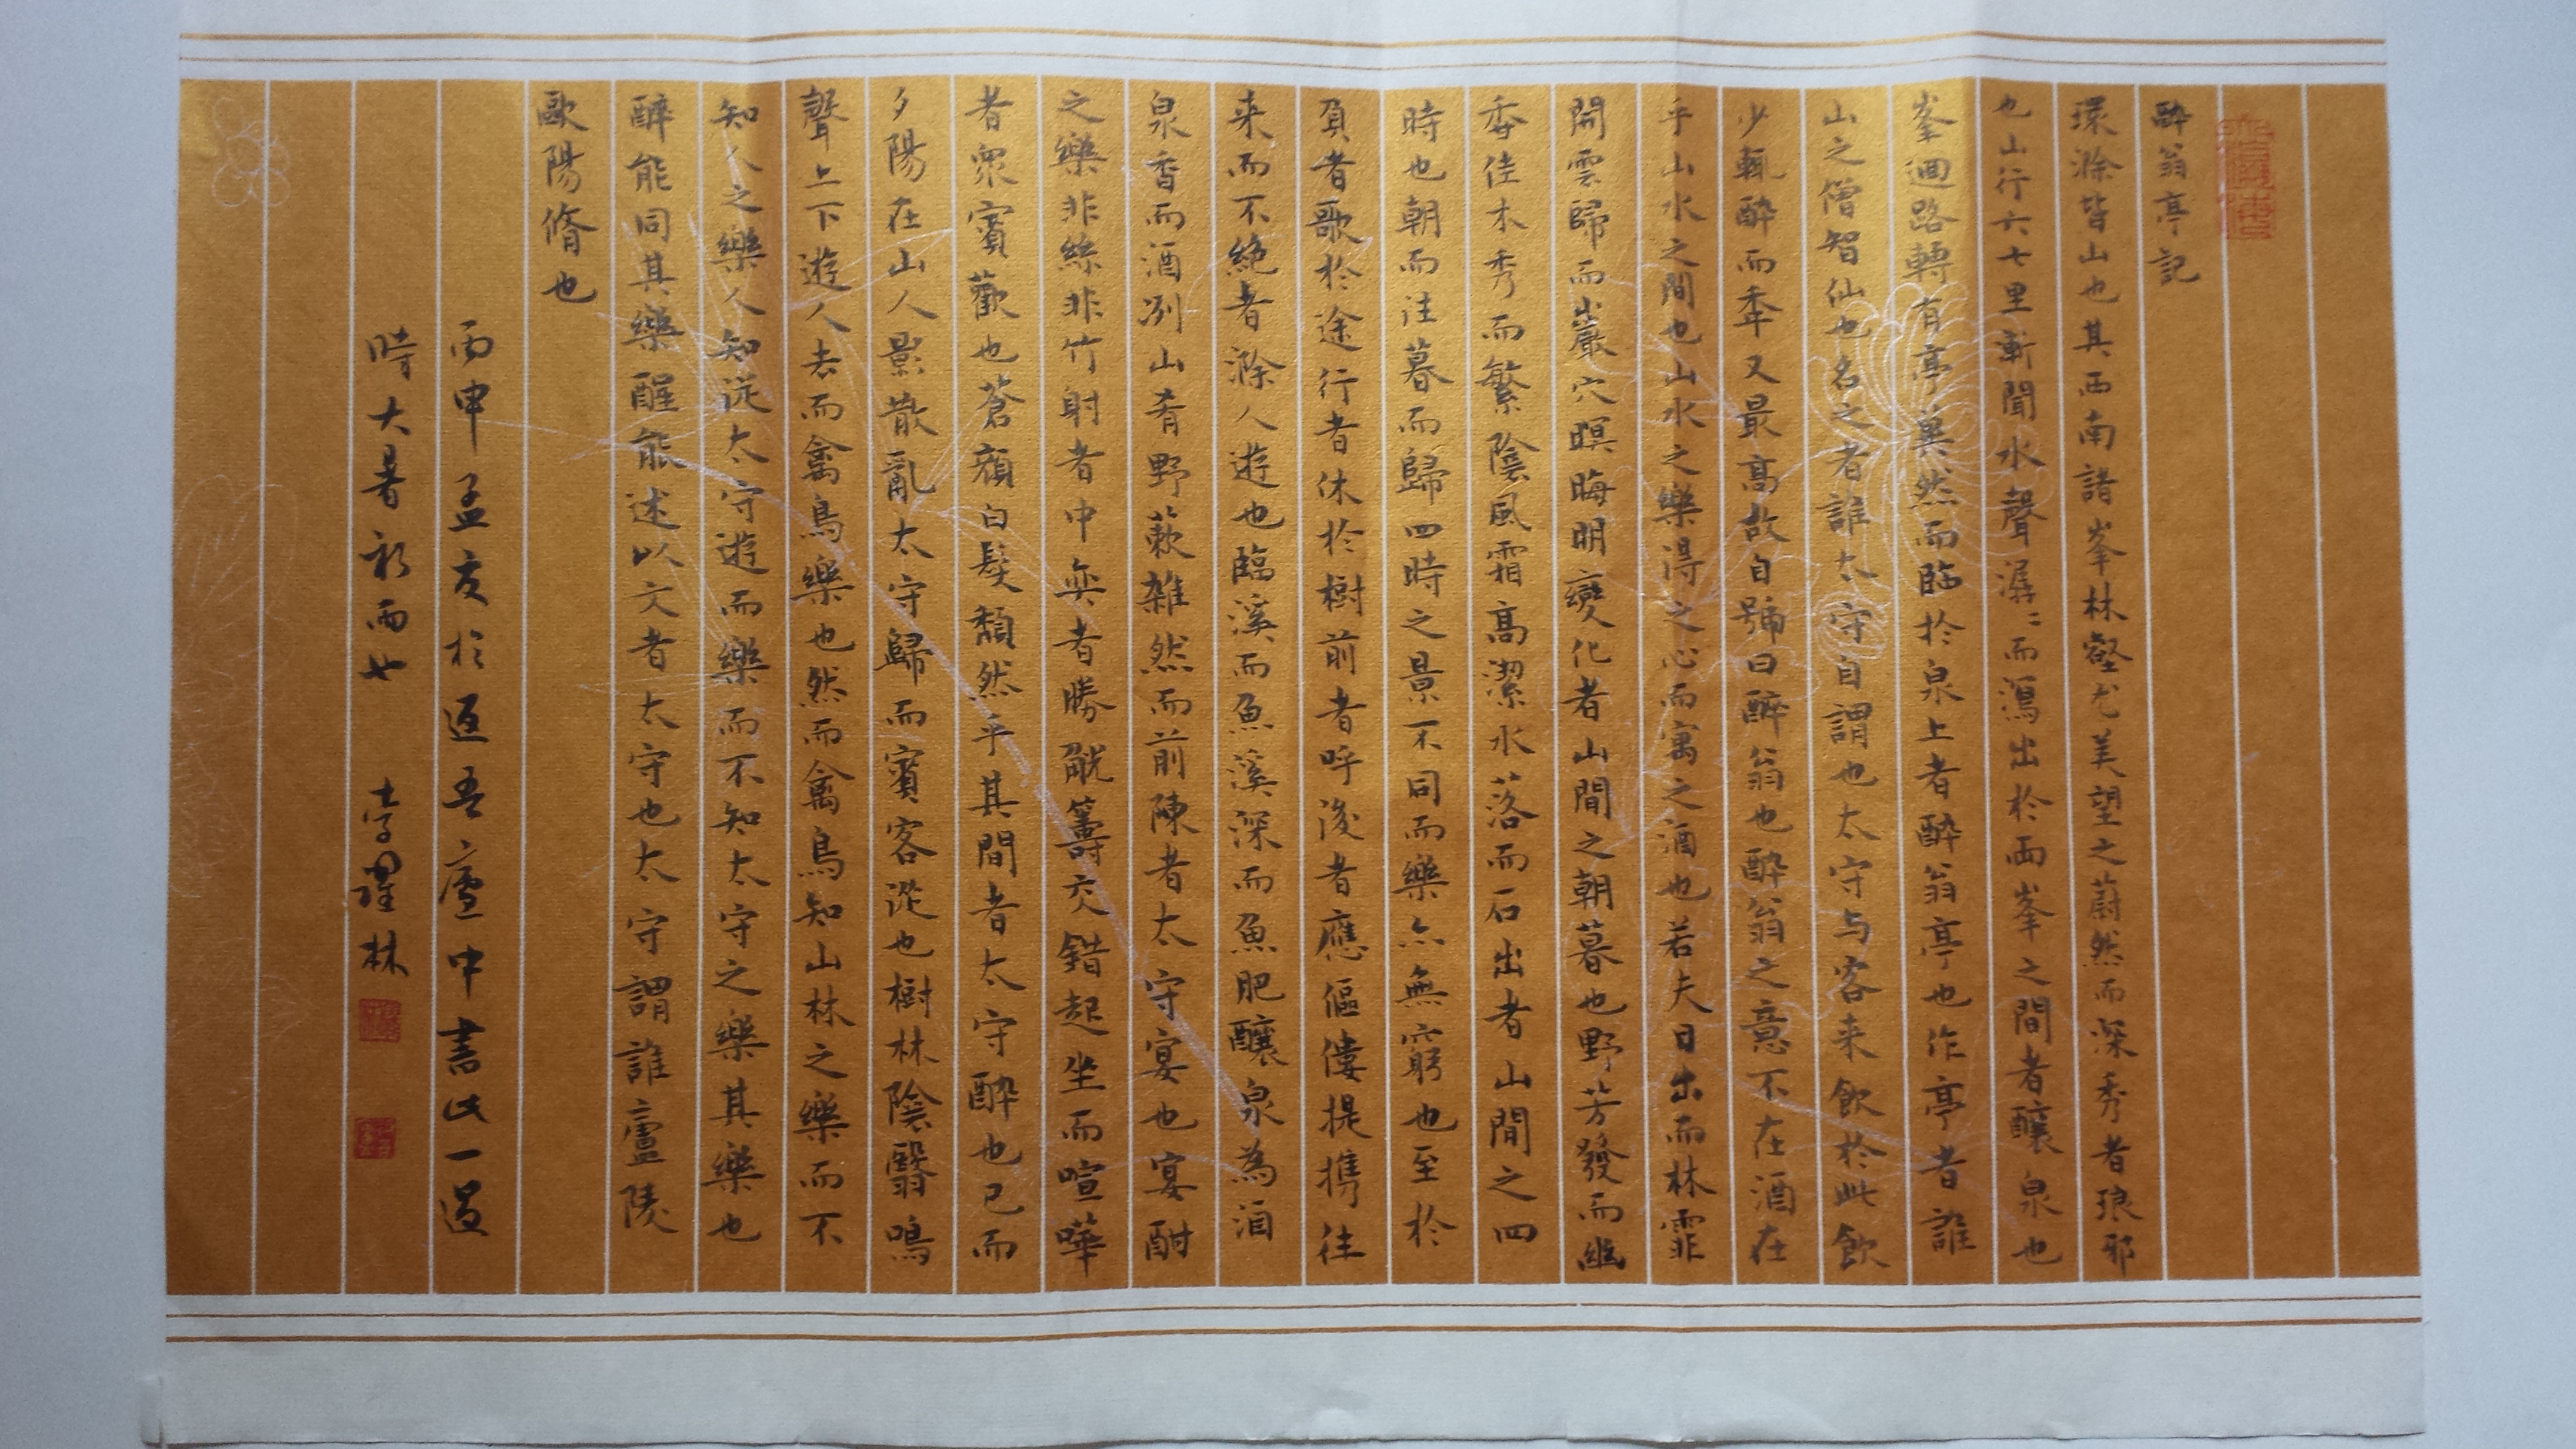 醉翁亭記
環滁皆山也其西南諸峯林壑尤美望之蔚然而深秀者琅邪
也山行六七里漸聞水聲潺〻而瀉出於兩峯之間者釀泉也
峯迴路轉有亭翼然而臨於泉上者醉翁亭也作亭者誰
山之僧智仙也名之者誰太守自謂也太守与客来飲於此飲
少輒醉而年又最高故自號曰醉翁也醉翁之意不在酒在
乎山水之間也山水之樂得之心而寓之酒也若夫日出而林霏
開雲歸而巖穴暝晦明變化者山間之朝暮也野芳發而幽
香佳木秀而繁陰風霜高潔水落而石出者山間之四
時也朝而往暮而歸四時之景不同而樂亦無窮也至於
負者歌於途行者休於樹前者呼後者應傴僂提携往
来而不絶者滁人遊也臨溪而魚溪深而魚肥釀泉為酒
泉香而酒冽山肴野蔌雜然而前陳者太守宴也宴酣
之樂非絲非竹射者中弈者勝觥籌交錯起坐而喧嘩
者衆賓歡也蒼顔白髮頹然乎其間者太守醉也已而
夕陽在山人景散亂太守歸而賓客從也樹林陰翳鳴
聲上下遊人去而禽鳥樂也然而禽鳥知山林之樂而不
知人之樂人知從太守遊而樂而不知太守之樂其樂也
醉能同其樂醒能述以文者太守也太守謂誰廬陵
歐陽脩也
丙申孟夏於返吾廬中書此一過
時大暑初雨也 李躍林